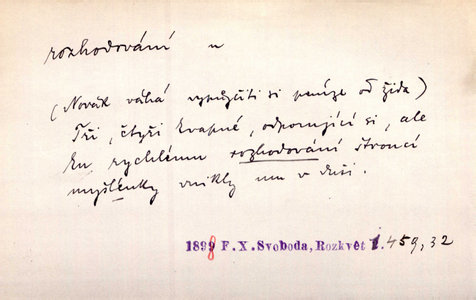 rozhodování n
(Novák váhá vypůjčiti si peníze od žida)
Tři, čtyři kvapné, odporující si, ale
ku rychlému rozhodování stroucí
myšlénky vnikly mu v duši.
1898 F. X. Svoboda, Rozkvět I. 459, 32